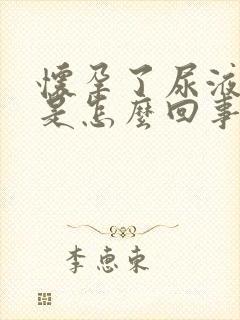 懷孕了尿液
是怎麼回事
李惠東